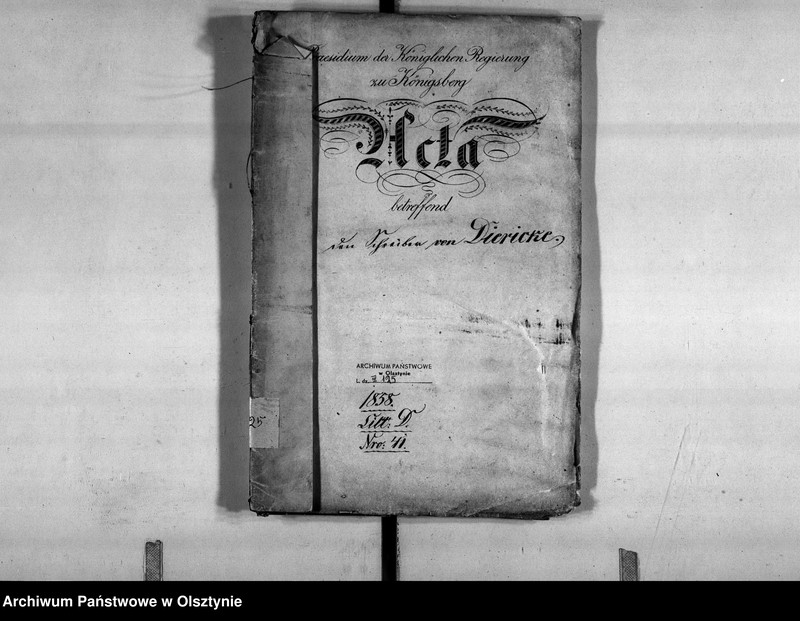 Praesidium der Königlichen Regierung
zu Königsberg
Acta
betreffend
den Schreiber von Diericke.
ARCHIWUM PAŃSTWOWE
w Olsztynie
L. dz. II 125
1838.
Litt: D.
Nro: 41.
25
Archiwum Państwowe w Olsztynie